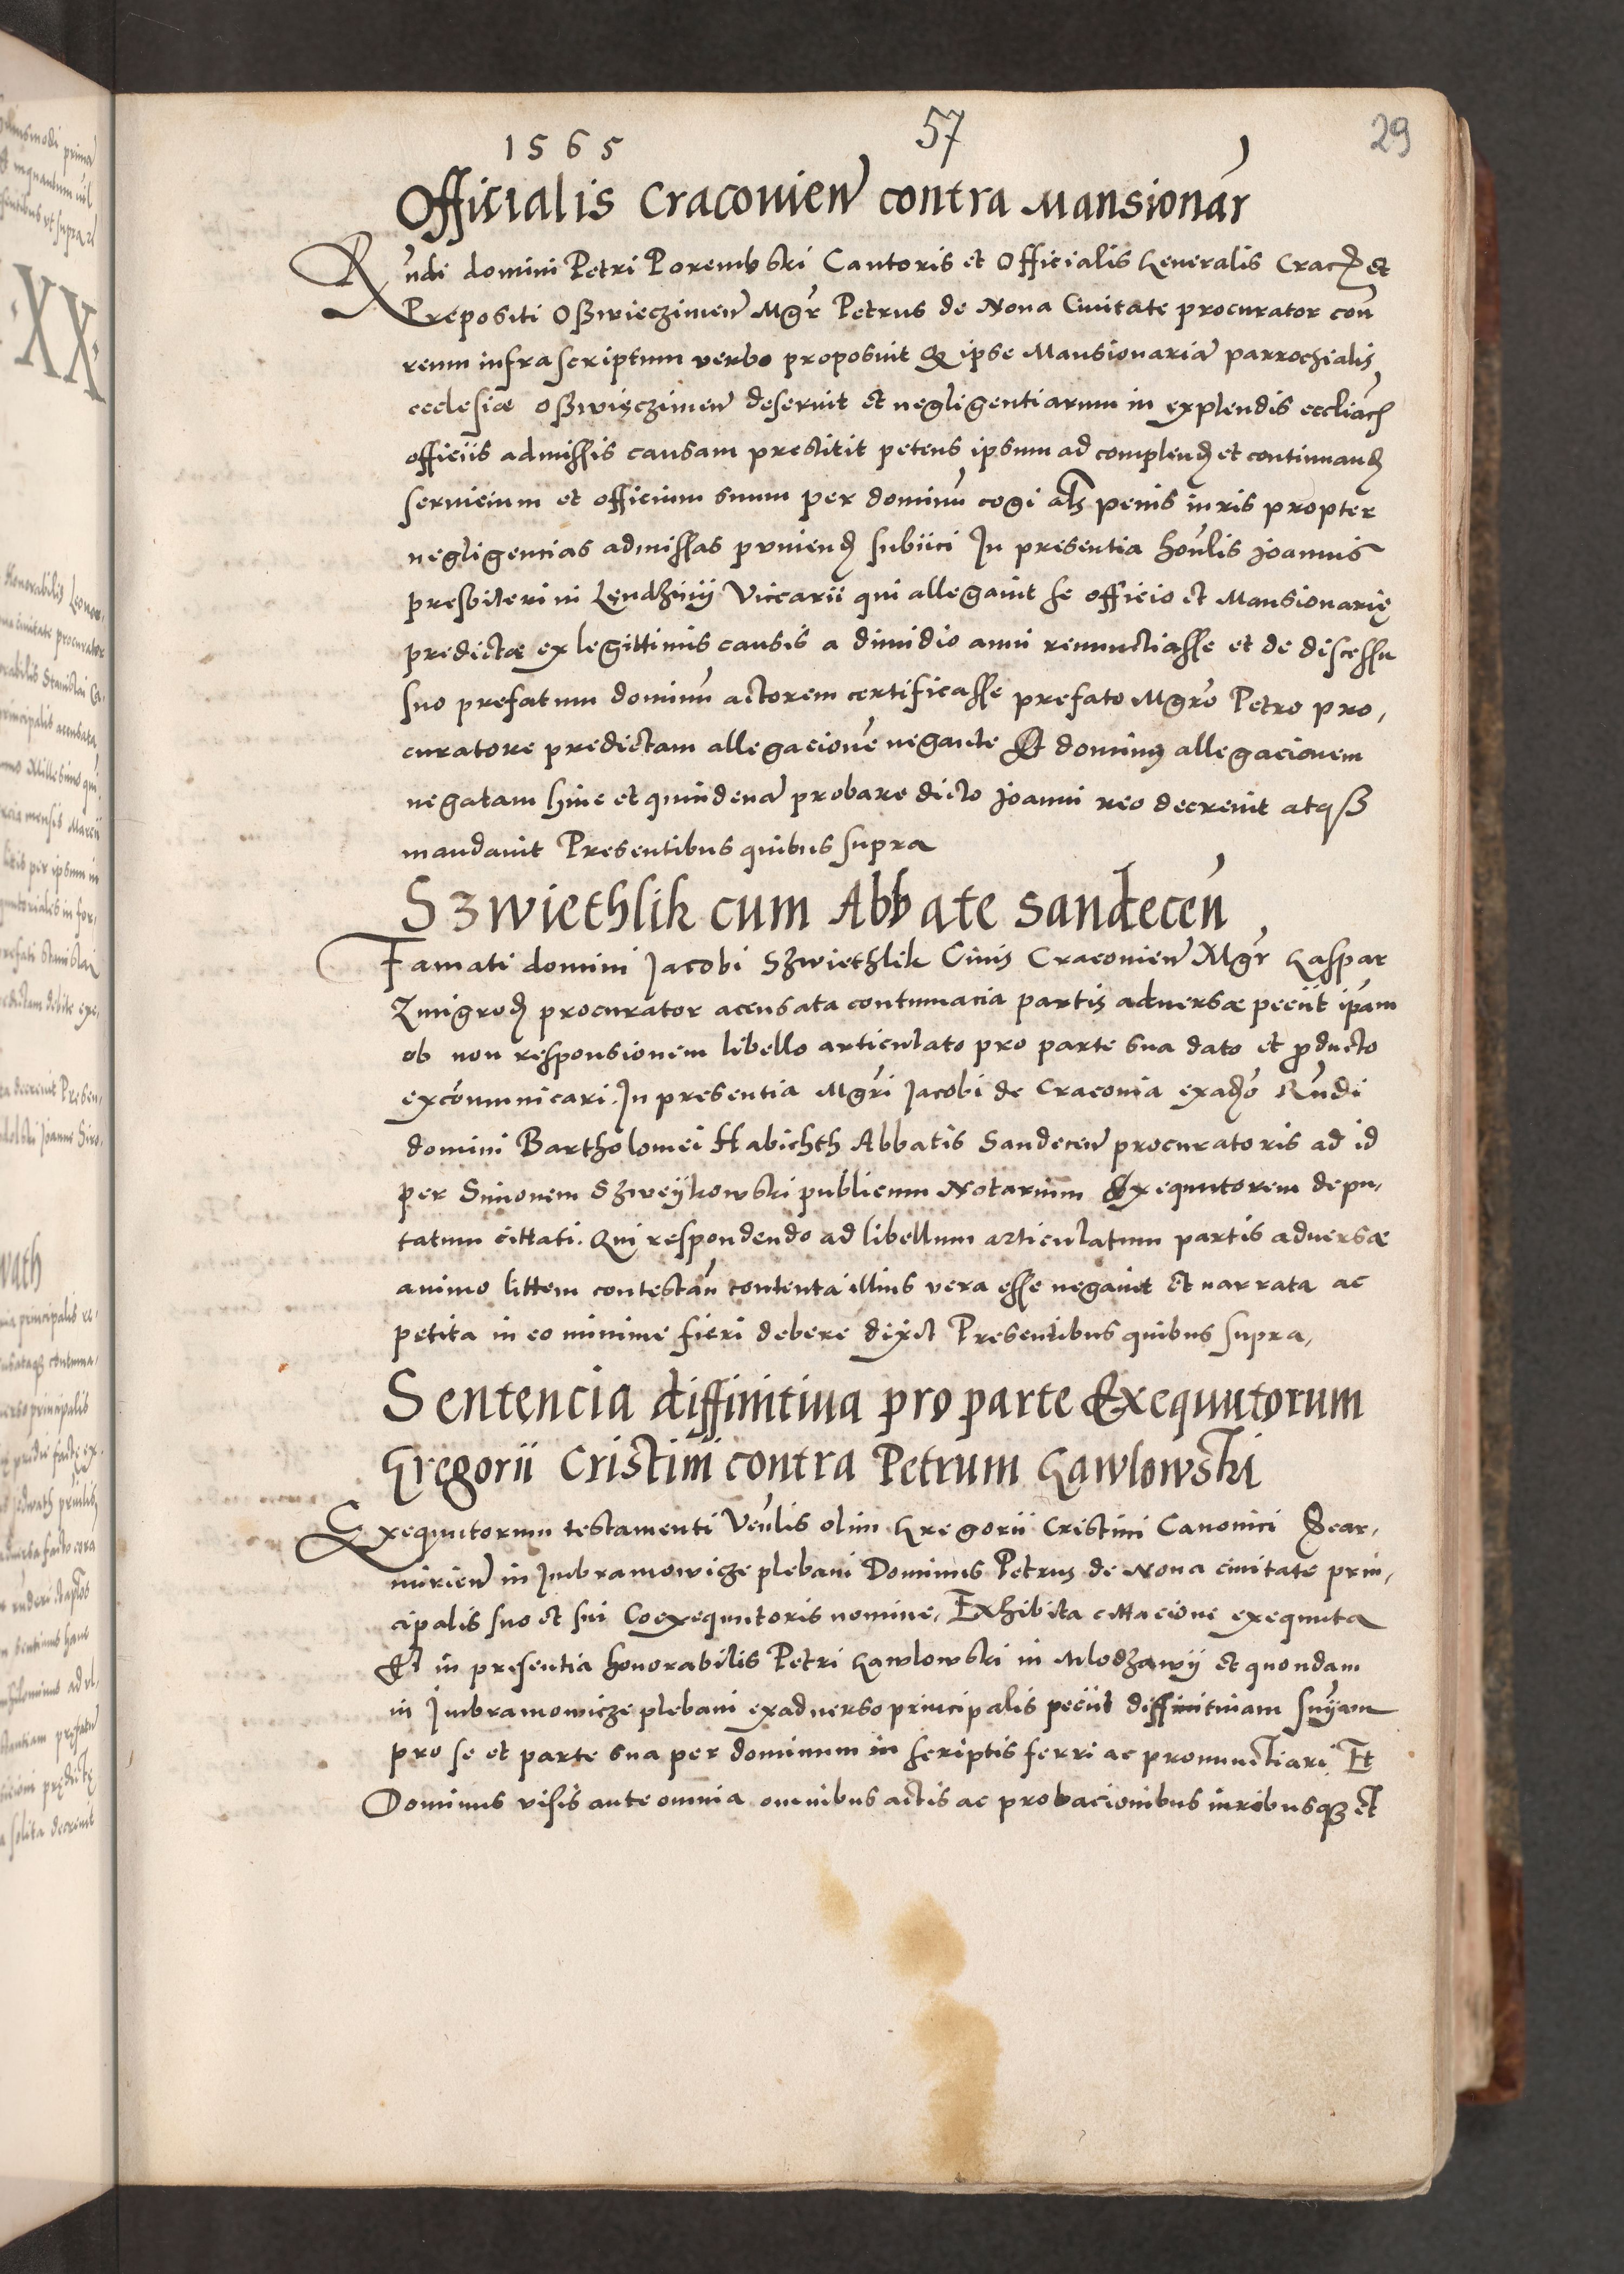 1565
57
29
Officialis Cracovien contra Mansionar
Rndi domini Petri Porembski Cantoris et Officialis Generalis Crac et
Prepositi Oswieczimen Mgr Petrus de Nova Civitate procurator con
reum infrascriptum verbo proposuit Q ipse Mansionaria parrochialis
ecclesiæ Oswięczimen deseruit et negligentiarum in explendis eccliac
officiis admissis causam prestitit petens ipsum ad complend et continuand
servicium et officium suum per dominu cogi als penis iuris propter
negligencias admissas puniend subiici In presentia honlis Joannis
presbiteri in Lęndzinij Viccarii qui allegavit se officio et Mansionarię
predictæ ex legittimis causis a dimidio anni renunctiasse et de discessu
suo prefatum dominu actorem certificasse prefato Mgro Petro pro,
curatore predictam allegacione negante Et dominus allegacionem
negatam hinc et quindena probare dicto Joanni reo decrevit atqz
mandavit Presentibus quibus supra
Szwiethlik cum Abbate Sandecen
Famati domini Jacobi Szwiethlik Civis Cracovien Mgr Gaspar
Zmigrod procurator accusata contumacia partis adversæ peciit ipam
ob non responsionem libello articulato pro parte sua dato et producto
excomunicari. In presentia Mgri Jacobi de Cracovia exadso Rndi
domini Bartholomei Habichth Abbatis Sandecen procuratoris ad id
per Simonem Szweijkowski publicum Notarium Exequutorem depu,
tatum cittati. Qui respondendo ad libellum articulatum partis adversæ
animo littem contestan contenta illius vera esse negavit et narrata ac
petita in eo minime fieri debere dixit Presentibus quibus supra,
Sentencia diffinitiva pro parte Exequutorum
Gregorii Cristini contra Petrum Gawlowski
Exequutorum testamenti Venlis olim Gregorii Cristini Canonici Scar,
mirien in Imbramowicze plebani Dominus Petrus de Nova civitate prin,
cipalis suo et sui Coexequutoris nomine, Exhibita cittacione exequuta
Et in presentia honorabilis Petri Gawlowski in Mlodzawij et quondam
in Imbramowicze plebani exadverso principalis peciit diffinitivam snijam
pro se et parte sua per dominum in scriptis ferri ac pronunctiari Et
Dominus visis ante omnia omnibus actis ac probacionibus iuribusqz et